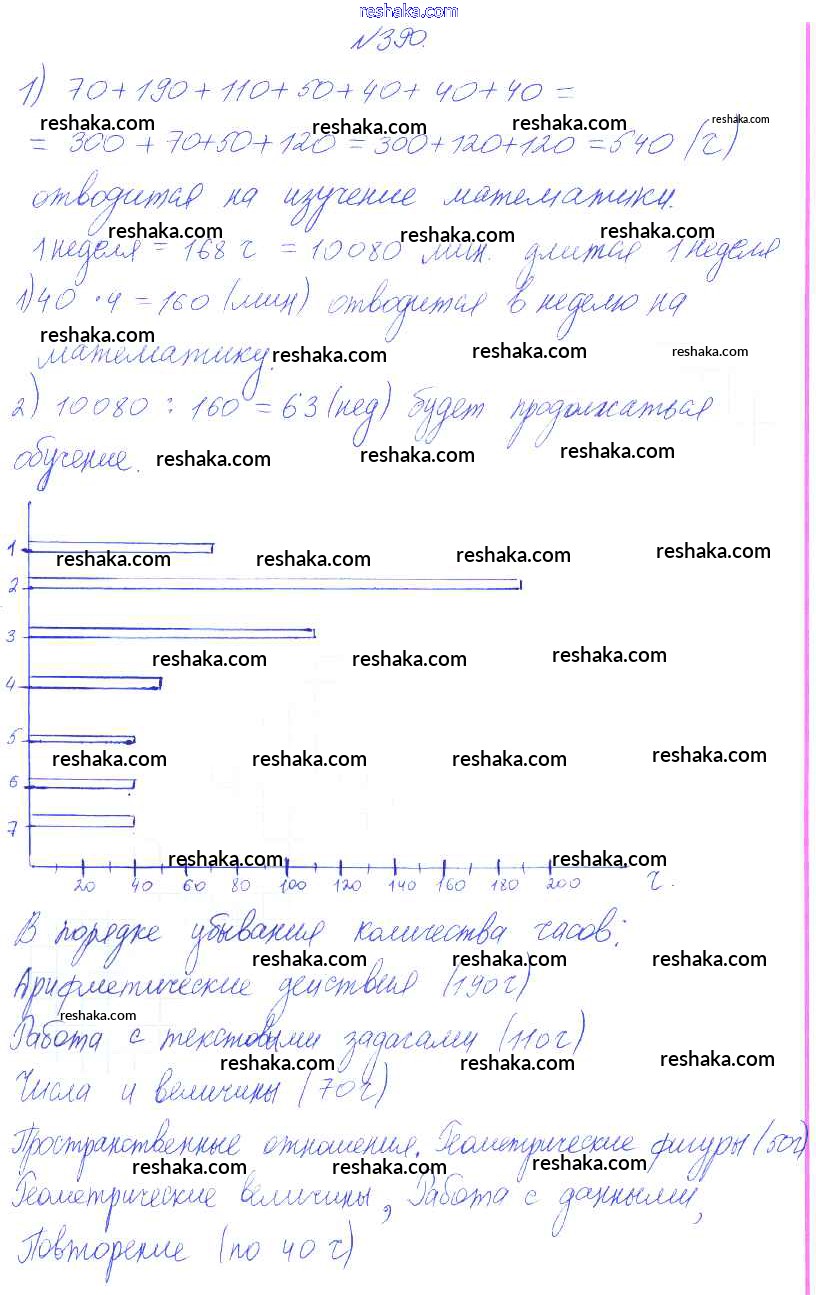 reshaka.com
№390.
1) 70+190+110+50+40+40+40=
reshaka.com reshaka.com reshaka.com reshaka.com
= 300+70+50+120=300+120+120=540 (ч)
отводится на изучение математики.
reshaka.com reshaka.com reshaka.com
1 неделя = 168 ч = 10080 мин. длится 1 неделя
1) 40 · 4 = 160 (мин) отводится в неделю на
reshaka.com reshaka.com reshaka.com reshaka.com
математику.
2) 10080 : 160 = 63 (нед) будет продолжаться
обучение. reshaka.com reshaka.com reshaka.com
1
reshaka.com reshaka.com reshaka.com reshaka.com
2
3
reshaka.com reshaka.com reshaka.com
4
5
reshaka.com reshaka.com reshaka.com reshaka.com
6
7
reshaka.com reshaka.com
20 40 60 80 100 120 140 160 180 200 ч.
В порядке убывания количества часов:
reshaka.com reshaka.com reshaka.com
Арифметические действия (190ч)
reshaka.com
Работа с текстовыми задачами (110ч)
reshaka.com reshaka.com reshaka.com
Числа и величины (70ч)
Пространственные отношения. Геометрические фигуры (50ч)
reshaka.com reshaka.com reshaka.com
Геометрические величины, Работа с данными,
Повторение (по 40 ч)